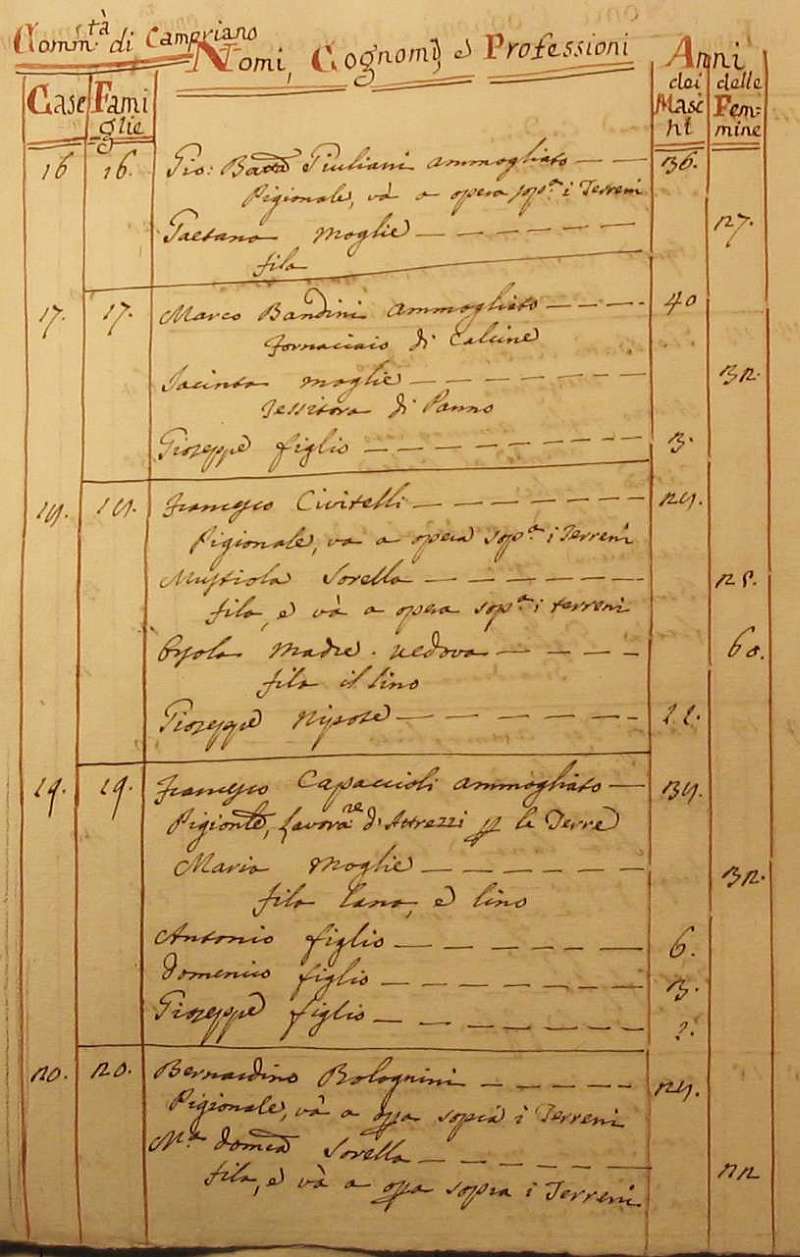 Comm.tà di Campriano
Nomi, Cognomi, e Professioni
Anni
Case
Famiglie
dei Maschi
delle Femmine
16 16. Gio: Batta Giuliani ammogliato — — 36.
Pigionale, và a opera sop.ª i Terreni
Gaetana moglie — — — — — — 27.
fila
17. 17. Marco Bandini ammogliato — — — - 40
Fornaciaio di Calcine
Jacinta moglie — — — — — — 32.
Tessitora di Panno
Gioseppe figlio — — — — — — — 3.
18. 18. Francesco Civitelli — — — — — — 28.
Pigionale, va a opera sop.ª i Terreni
Mustiola Sorella — — — — — — 25.
fila, e và a opera sop.ª i terreni
Orsola Madre. vedova — — — — 60.
fila il lino
Gioseppe Nipote — — — — — — 11.
19. 19. Francesco Capaccioli ammogliato — 38.
Pigionle, Lavorare d'Attrezzi p le Terre
Maria moglie — — — — — — 32.
fila lana, e lino
Antonio figlio — — — — — — 6.
Domenico figlio — — — — — — 3.
Gioseppe figlio — — — — — —
20. 20. Bernardino Bolognini — — — — 28.
Pigionale, và a opa sopra i Terreni
M.ª Domca Sorella — — — — — 22
fila, e và a opa sopra i Terreni